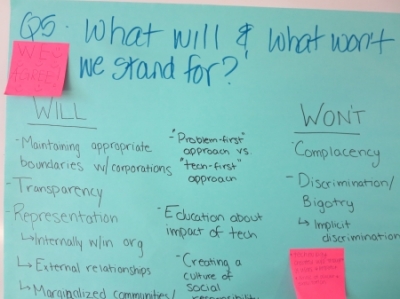 Q5. What will & what won't
we stand for?
WE
AGREE!
WILL
-Maintaining appropriate
boundaries w/ corporations
-Transparency
-Representation
↳Internally w/in org
↳External relationships
↳Marginalized communities/
-"Problem-first"
approach vs
"tech-first"
approach
-Education about
impact of tech
-Creating a
culture of
social
responsibility
WON'T
-Complacency
-Discrimination/
Bigotry
↳Implicit
discrimination